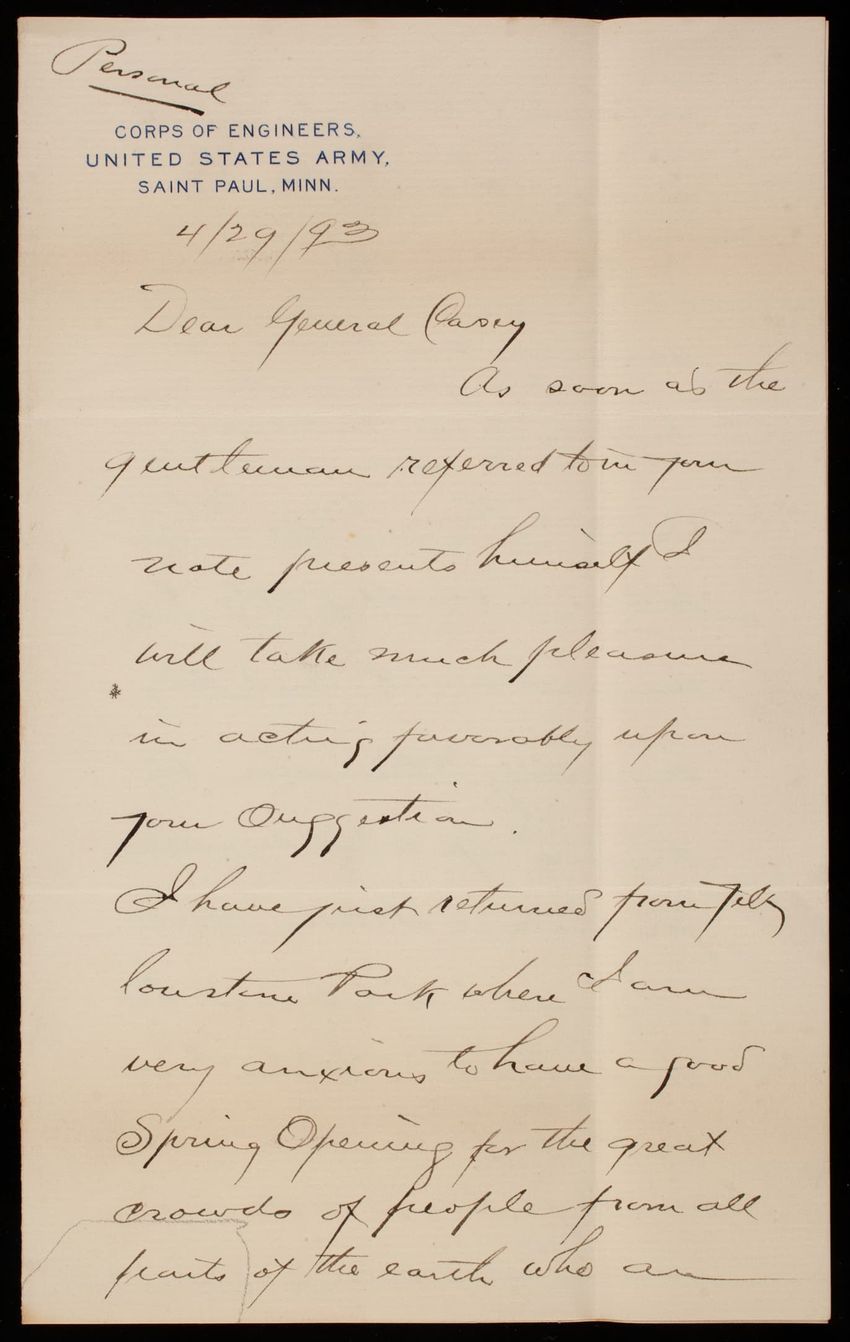 Personal
CORPS OF ENGINEERS,
UNITED STATES ARMY,
SAINT PAUL, MINN.
4/29/93
Dear General Casey
As soon as the
gentleman referred to in your
note presents himself I
will take much pleasure
in acting favorably upon
your Suggestion.
I have just returned from Yell
lowstone Park where I am
very anxious to have a good
Spring Opening for the great
crowds of people from all
parts of the earth who are